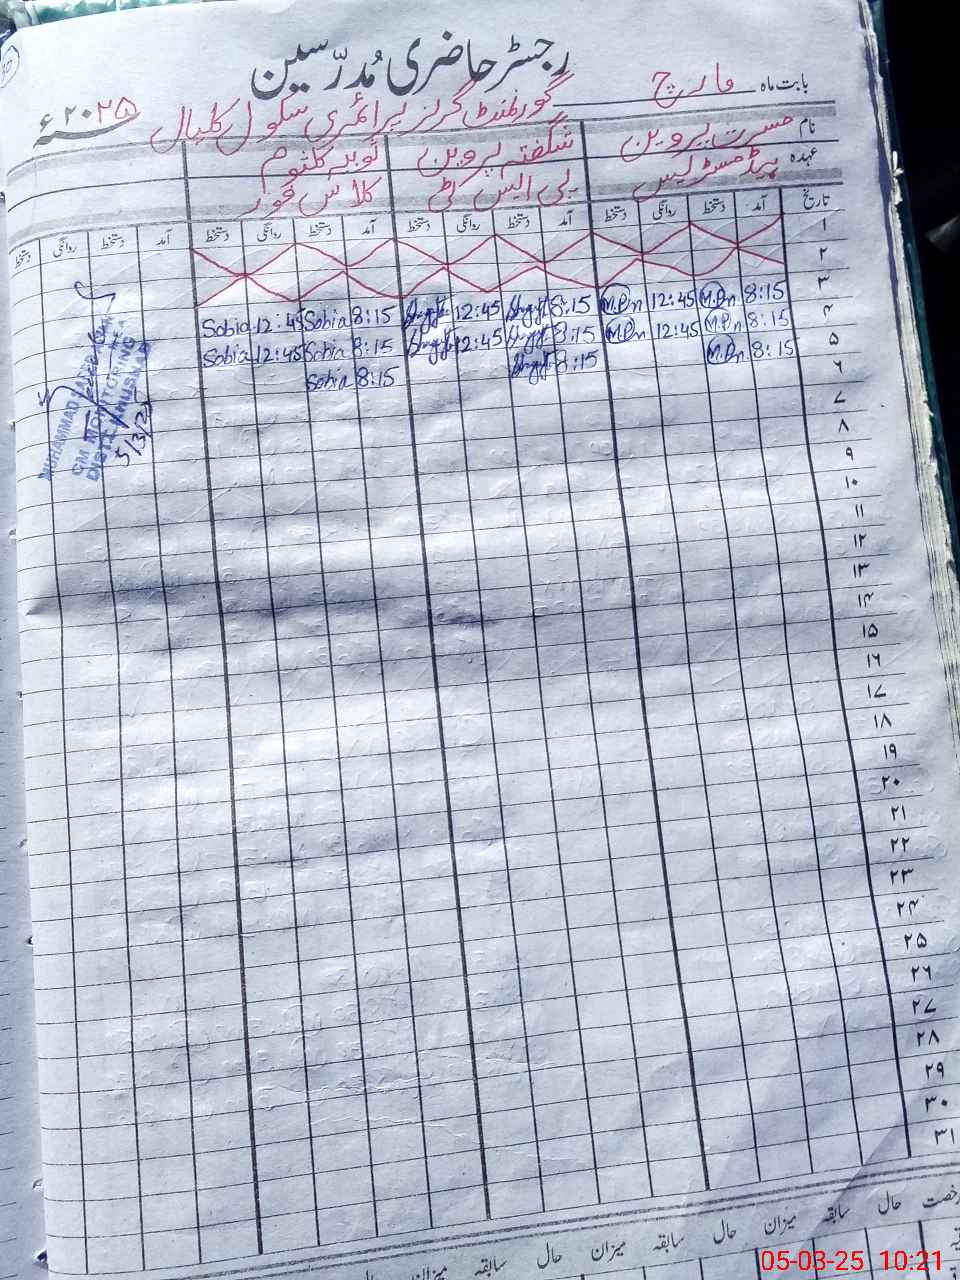 رجسٹر حاضری مُدرّسین
بابت ماہ مارچ ۲۰۲۵ء
گورنمنٹ گرلز پرائمری سکول رکلیال
نام مسرت پروین شگفتہ پروین ثوبیہ کلثوم
عہدہ ہیڈمسٹریس پی ایس ٹی کلاس فور
تاریخ آمد دستخط روانگی دستخط آمد دستخط روانگی دستخط آمد دستخط روانگی دستخط آمد دستخط روانگی دستخط
۱
۲
۳ 8:15 M.Pn 12:45 M.Pn 8:15 12:45 8:15 Sobia 12:45 Sobia
۴ 8:15 M.Pn 12:45 M.Pn 8:15 12:45 8:15 Sobia 12:45 Sobia
۵ 8:15 M.Pn 8:15 8:15 Sobia
۶
۷
۸
۹
۱۰
۱۱
۱۲
۱۳
۱۴
۱۵
۱۶
۱۷
۱۸
۱۹
۲۰
۲۱
۲۲
۲۳
۲۴
۲۵
۲۶
۲۷
۲۸
۲۹
۳۰
۳۱
MUHAMMAD
CM MONITORING
5/3/25
رخصت حال سابقہ میزان حال سابقہ میزان حال سابقہ میزان حال
05-03-25 10:21